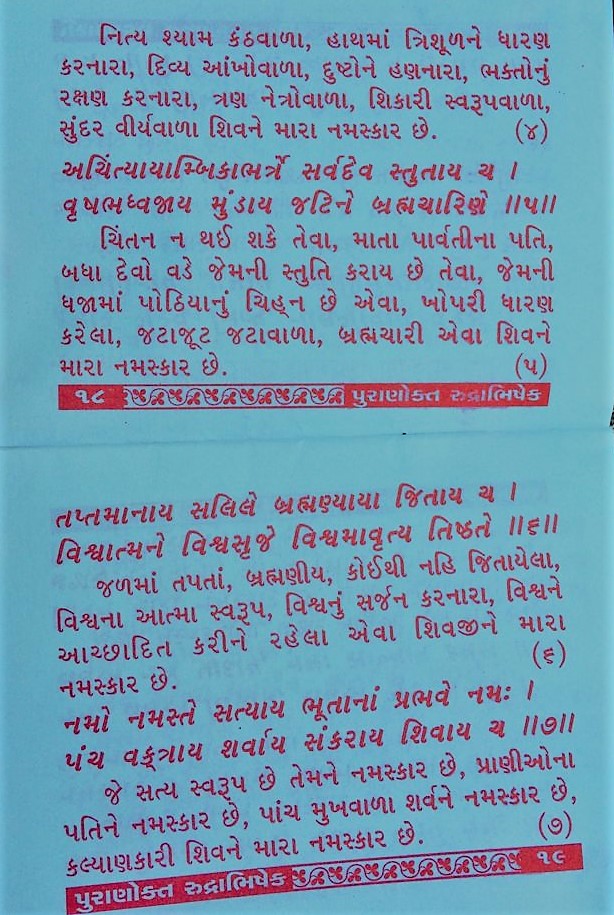 નિત્ય શ્યામ કંઠવાળા, હાથમાં ત્રિશૂળને ધારણ
કરનારા, દિવ્ય આંખોવાળા, દુષ્ટોને હણનારા, ભક્તોનું
રક્ષણ કરનારા, ત્રણ નેત્રોવાળા, શિકારી સ્વરૂપવાળા,
સુંદર વીર્યવાળા શિવને મારા નમસ્કાર છે. (૪)
અચિંત્યાયામ્બિકાભર્ત્રે સર્વદેવ સ્તુતાય ચ ।
વૃષભધ્વજાય મુંડાય જટિને બ્રહ્મચારિણે ॥૫॥
ચિંતન ન થઈ શકે તેવા, માતા પાર્વતીના પતિ,
બધા દેવો વડે જેમની સ્તુતિ કરાય છે તેવા, જેમની
ધજામાં પોઠિયાનું ચિહ્ન છે એવા, ખોપરી ધારણ
કરેલા, જટાજૂટ જટાવાળા, બ્રહ્મચારી એવા શિવને
મારા નમસ્કાર છે. (૫)
૧૮ પુરાણોક્ત રુદ્રાભિષેક
તપ્તમાનાય સલિલે બ્રહ્મણ્યાયા જિતાય ચ ।
વિશ્વાત્મને વિશ્વસૃજે વિશ્વમાવૃત્ય તિષ્ઠતે ॥૬॥
જળમાં તપતાં, બ્રહ્મણીય, કોઈથી નહિ જિતાયેલા,
વિશ્વના આત્મા સ્વરૂપ, વિશ્વનું સર્જન કરનારા, વિશ્વને
આચ્છાદિત કરીને રહેલા એવા શિવજીને મારા
નમસ્કાર છે. (૬)
નમો નમસ્તે સત્યાય ભૂતાનાં પ્રભવે નમઃ ।
પંચ વક્ત્રાય શર્વાય સંકરાય શિવાય ચ ॥૭॥
જે સત્ય સ્વરૂપ છે તેમને નમસ્કાર છે, પ્રાણીઓના
પતિને નમસ્કાર છે, પાંચ મુખવાળા શર્વને નમસ્કાર છે,
કલ્યાણકારી શિવને મારા નમસ્કાર છે. (૭)
પુરાણોક્ત રુદ્રાભિષેક ૧૯